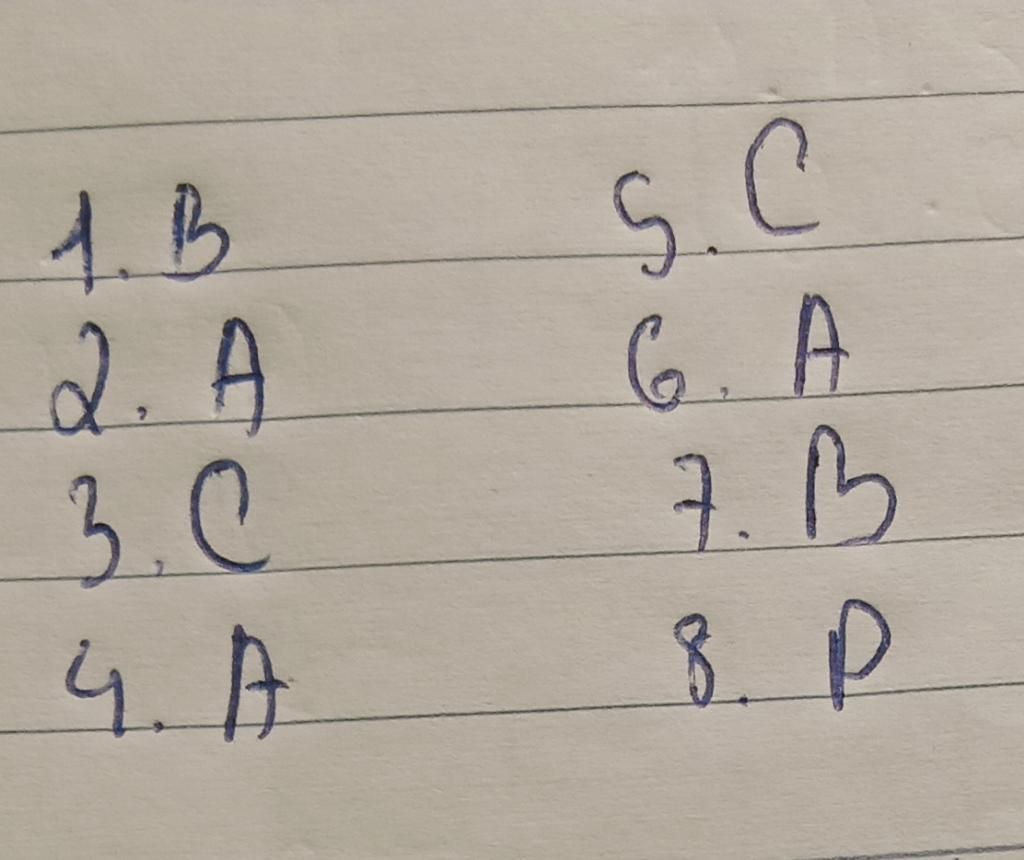 1. B
2. A
3. C
4. A
5. C
6. A
7. B
8. D